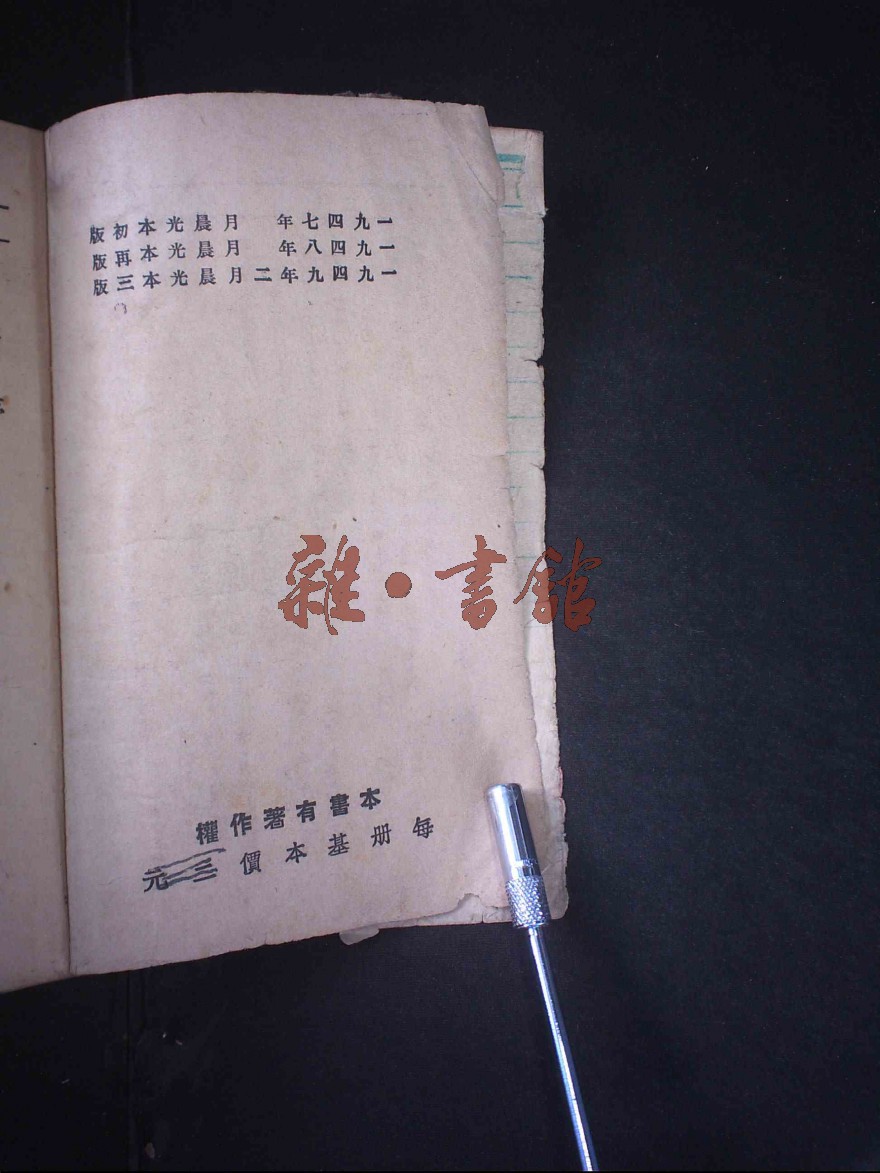 一九四七年　月晨光本初版
一九四八年　月晨光本再版
一九四九年二月晨光本三版
雜·書館
本書有著作權
每册基本價三元